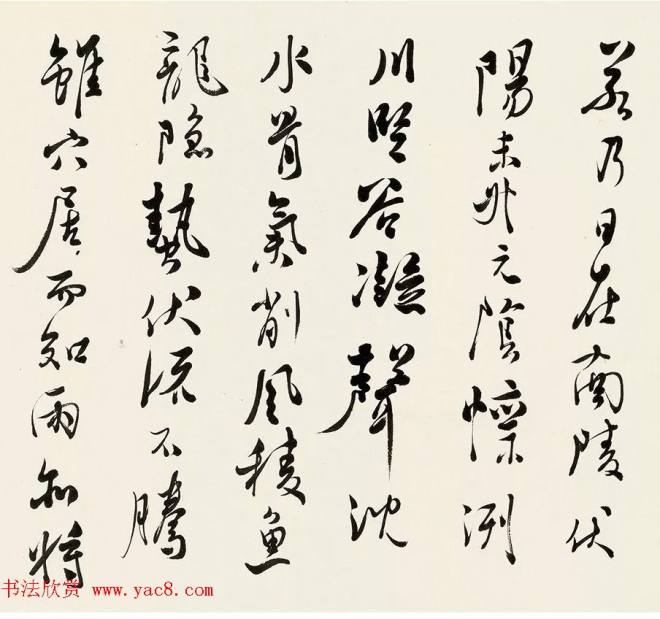 若乃日在南陵伏
陽未升元陰慄冽
川堅谷凝聲沈
水骨氣削風稜魚
龍隱蟄伏流不騰
雖穴居而知雨知將
书法欣赏 www.yac8.com